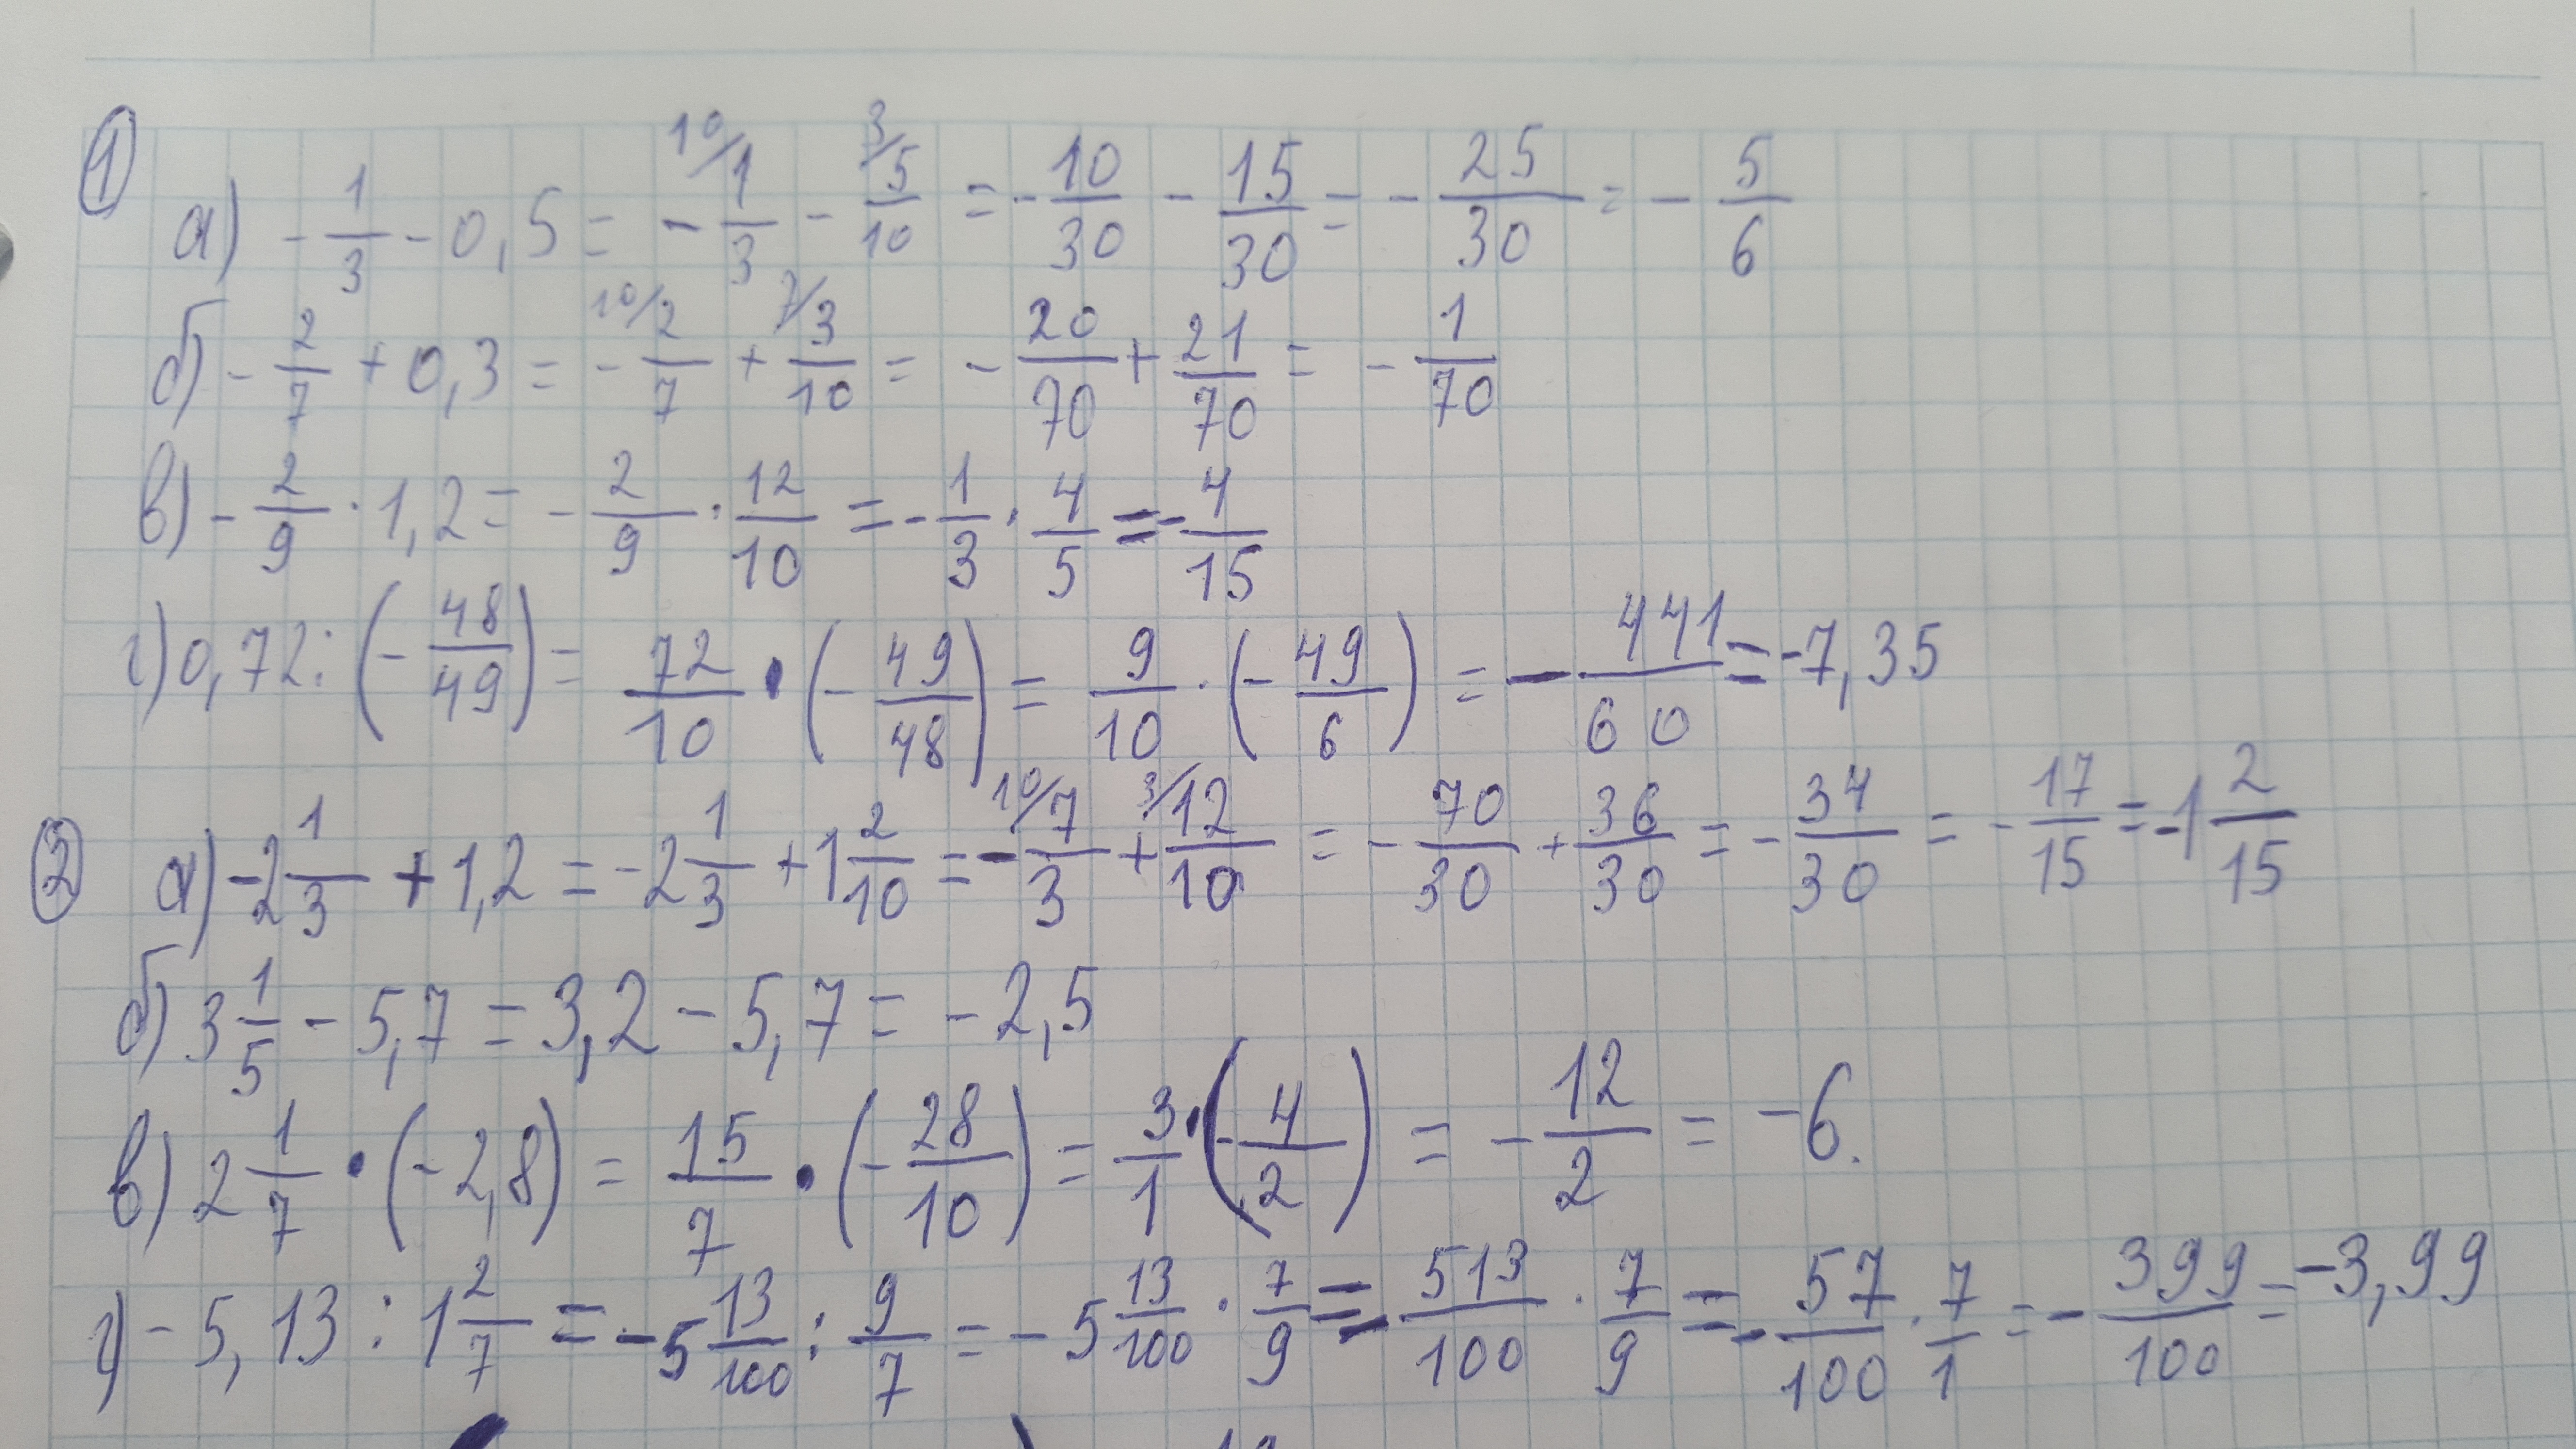 1
а) - 1/3 - 0,5 = - 10/ 1/3 - 3/ 5/10 = - 10/30 - 15/30 = - 25/30 = - 5/6
б) - 2/7 + 0,3 = - 10/ 2/7 + 7/ 3/10 = - 20/70 + 21/70 = - 1/70
в) - 2/9 · 1,2 = - 2/9 · 12/10 = - 1/3 · 4/5 = - 4/15
г) 0,72 : (- 48/49) = 72/10 · (- 49/48) = 9/10 · (- 49/6) = - 441/60 = -7,35
2
а) -2 1/3 + 1,2 = -2 1/3 + 1 2/10 = - 10/ 7/3 + 3/ 12/10 = - 70/30 + 36/30 = - 34/30 = - 17/15 = -1 2/15
б) 3 1/5 - 5,7 = 3,2 - 5,7 = - 2,5
в) 2 1/7 · (-2,8) = 15/7 · (- 28/10) = 3/1 · (- 4/2) = - 12/2 = -6.
г) - 5,13 : 1 2/7 = -5 13/100 : 9/7 = - 5 13/100 · 7/9 = - 513/100 · 7/9 = - 57/100 · 7/1 = - 399/100 = -3,99